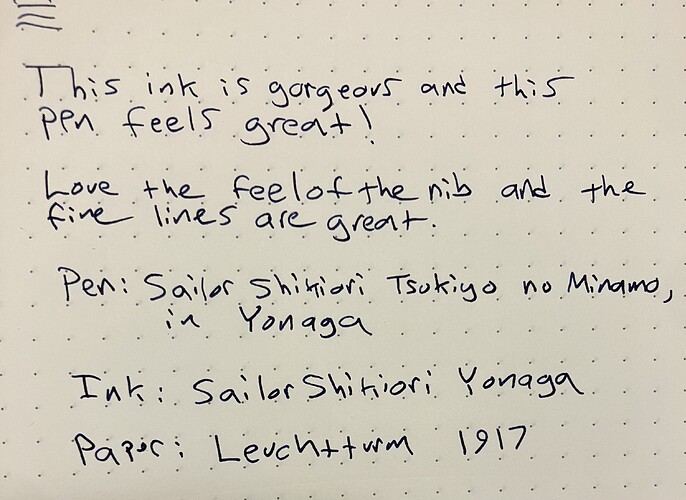 This ink is gorgeous and this
pen feels great!
Love the feel of the nib and the
fine lines are great.
Pen: Sailor Shikiori Tsukiyo no Minamo,
in Yonaga
Ink: Sailor Shikiori Yonaga
Paper: Leuchtturm 1917